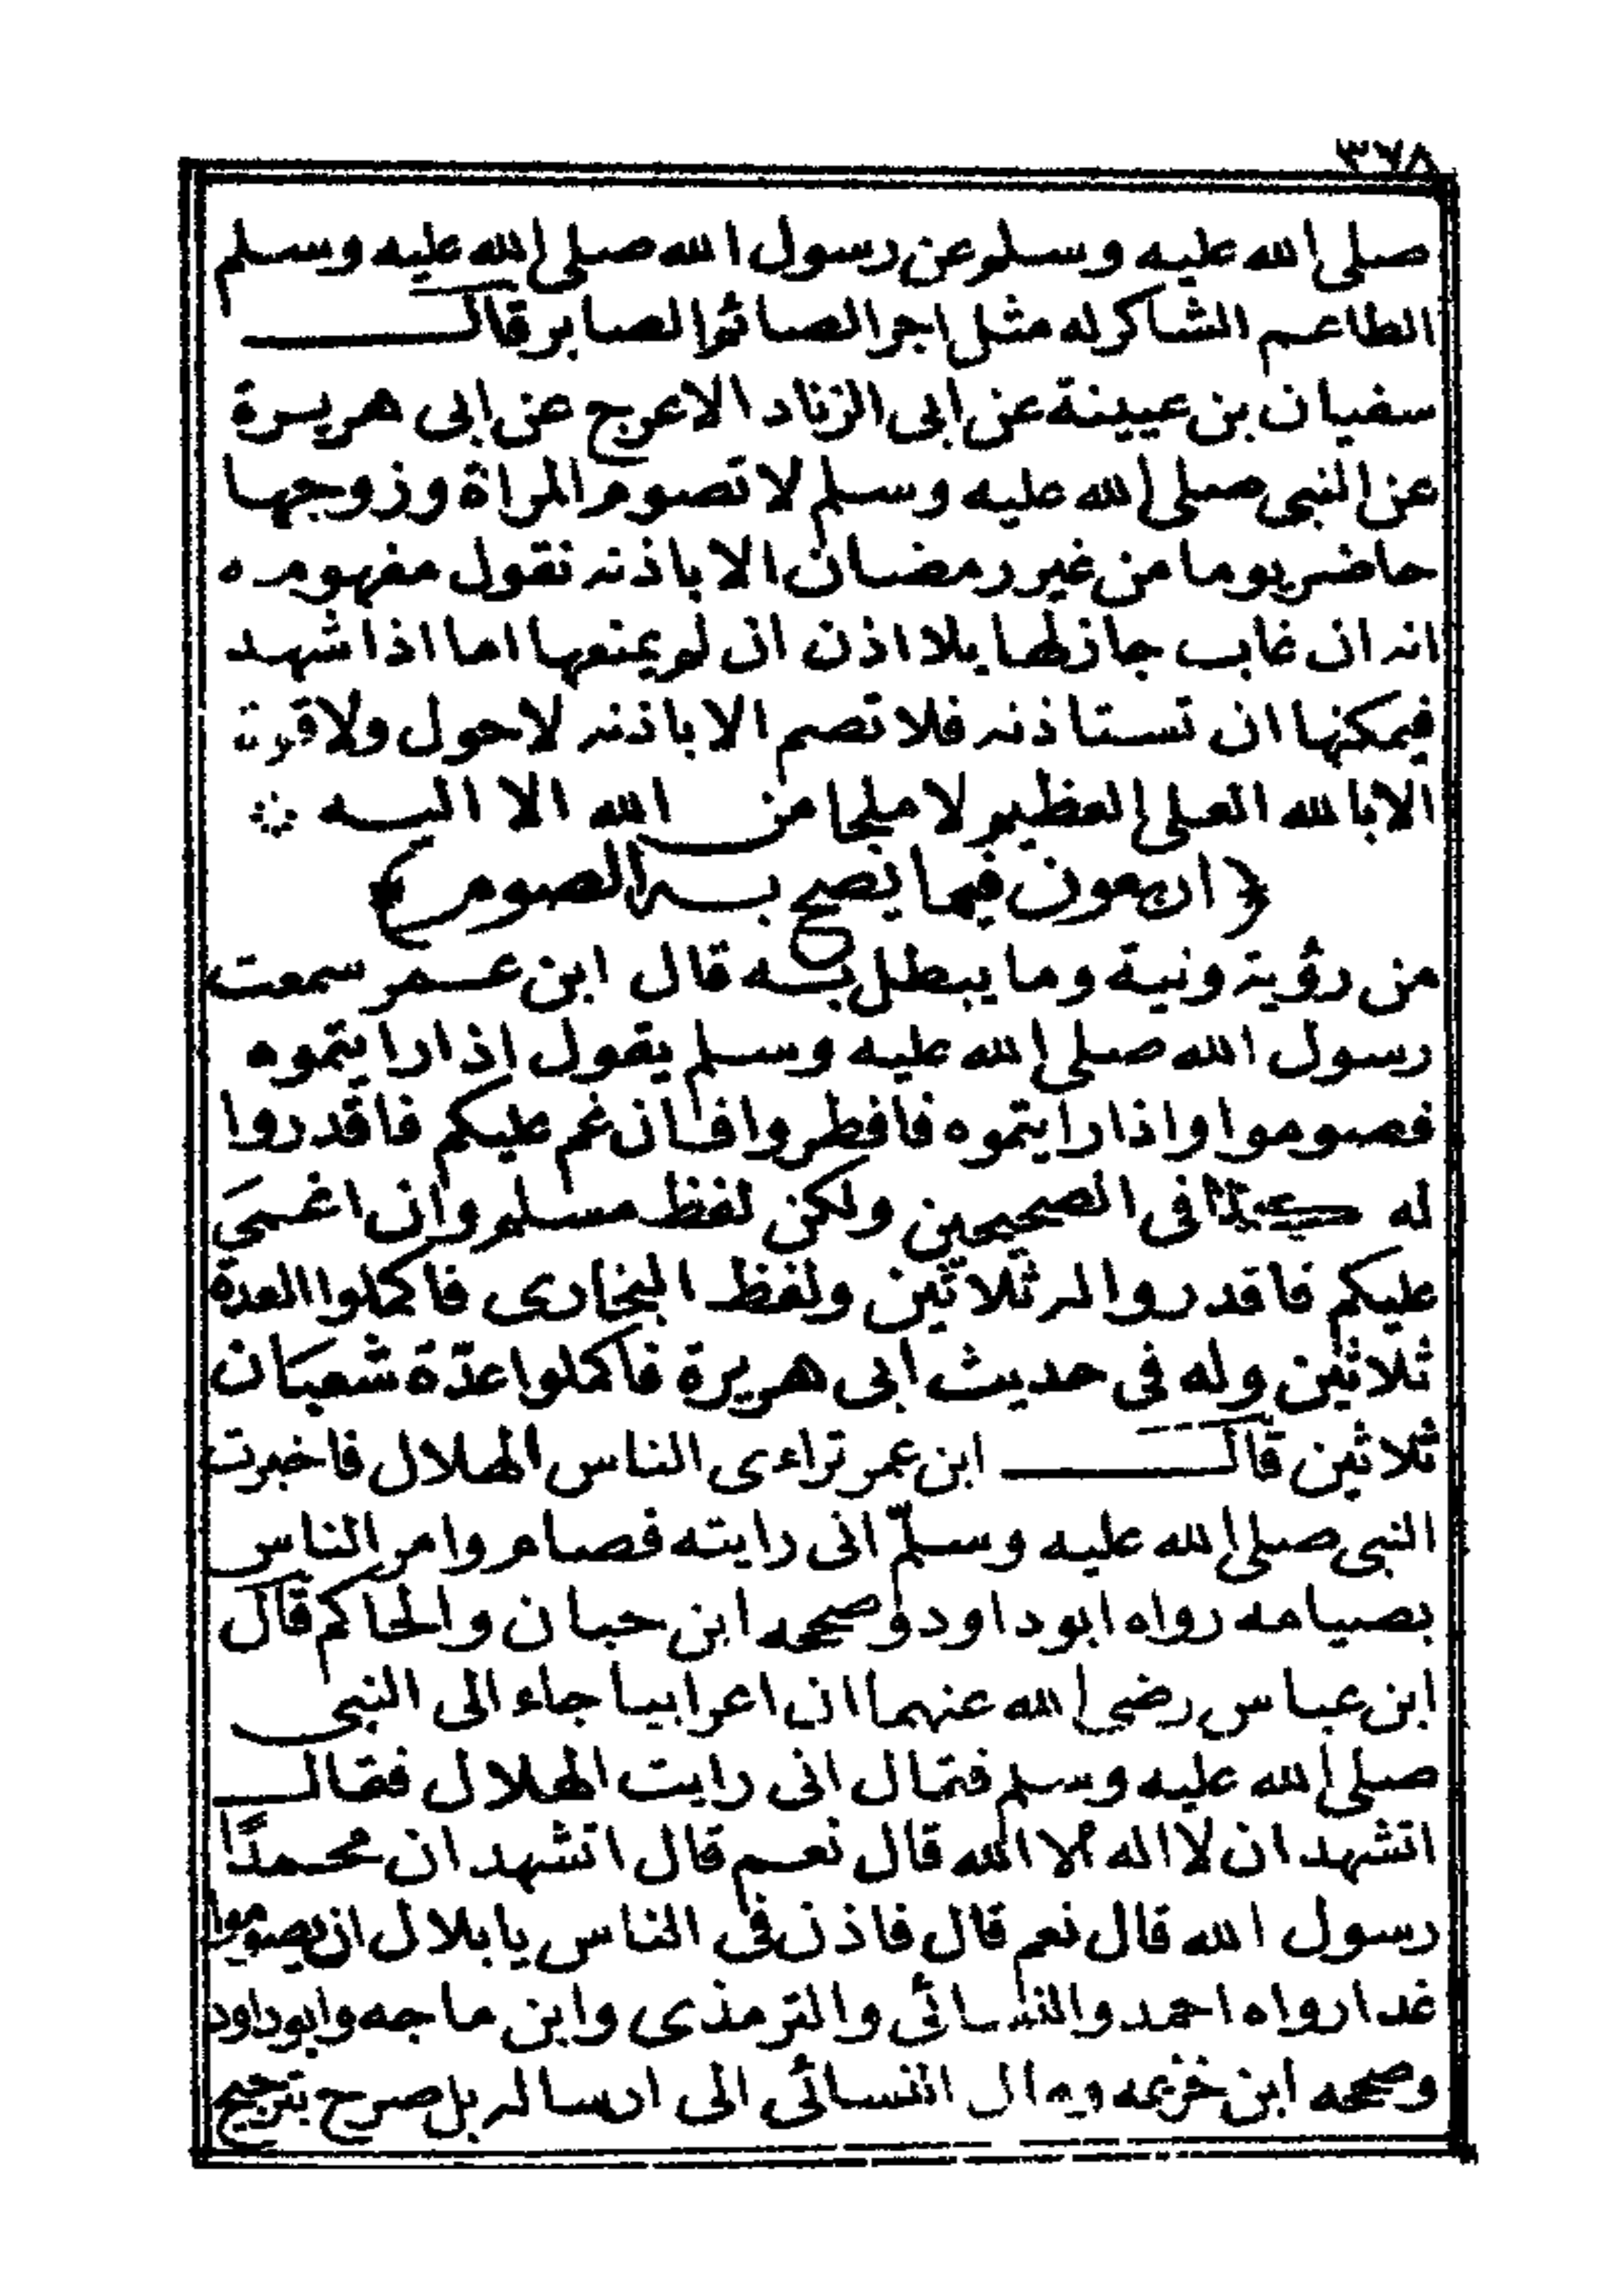 ٣٧٨
صلى الله عليه وسلم عن رسول الله صلى الله عليه وسلم
الطاعم الشاكر له مثل اجر الصائم الصابر قال
سفيان بن عيينة عن ابى الزناد الاعرج عن ابى هريرة
عن النبى صلى الله عليه وسلم لا تصوم المراة وزوجها
حاضر يوما من غير رمضان الا باذنه نقول مفهومه
انه ان غاب جاز لها بلا اذن ان لم يمنعها اما اذا شهد
فيمكنها ان تستاذنه فلا تصم الا باذنه لا حول ولا قوة
الا بالله العلى العظيم لا ملجا من الله الا اليه
﴿ اربعون فيما يصح به الصوم ﴾
من رؤية ونية وما يبطل به قال ابن عمر سمعت
رسول الله صلى الله عليه وسلم يقول اذا رايتموه
فصوموا واذا رايتموه فافطروا فان غم عليكم فاقدروا
له كذا فى الصحيحين ولكن لفظ مسلم وان اغمىَ
عليكم فاقدروا له ثلاثين ولفظ البخارى فاكملوا العدة
ثلاثين وله فى حديث ابى هريرة فاكملوا عدّة شعبَان
ثلاثين قال ابن عمر تراءى الناس الهلال فاخبرت
النبى صلى الله عليه وسلّم انى رايته فصام وامر الناس
بصيامه رواه ابو داود وصححه ابن حبان والحاكم قال
ابن عباس رضى الله عنهما ان اعرابيا جاء الى النبى
صلى الله عليه وسلم فقال انى رايت الهلال فقال
اتشهد ان لا اله الا الله قال نعم قال اتشهد ان محمدًا
رسول الله قال نعم قال فاذن فى الناس يا بلال ان يصوموا
غدا رواه احمد والنسائى والترمذى وابن ماجه وابو داود
وصححه ابن خزيمه ومال النسائى الى ارساله بل صرح بترجيح